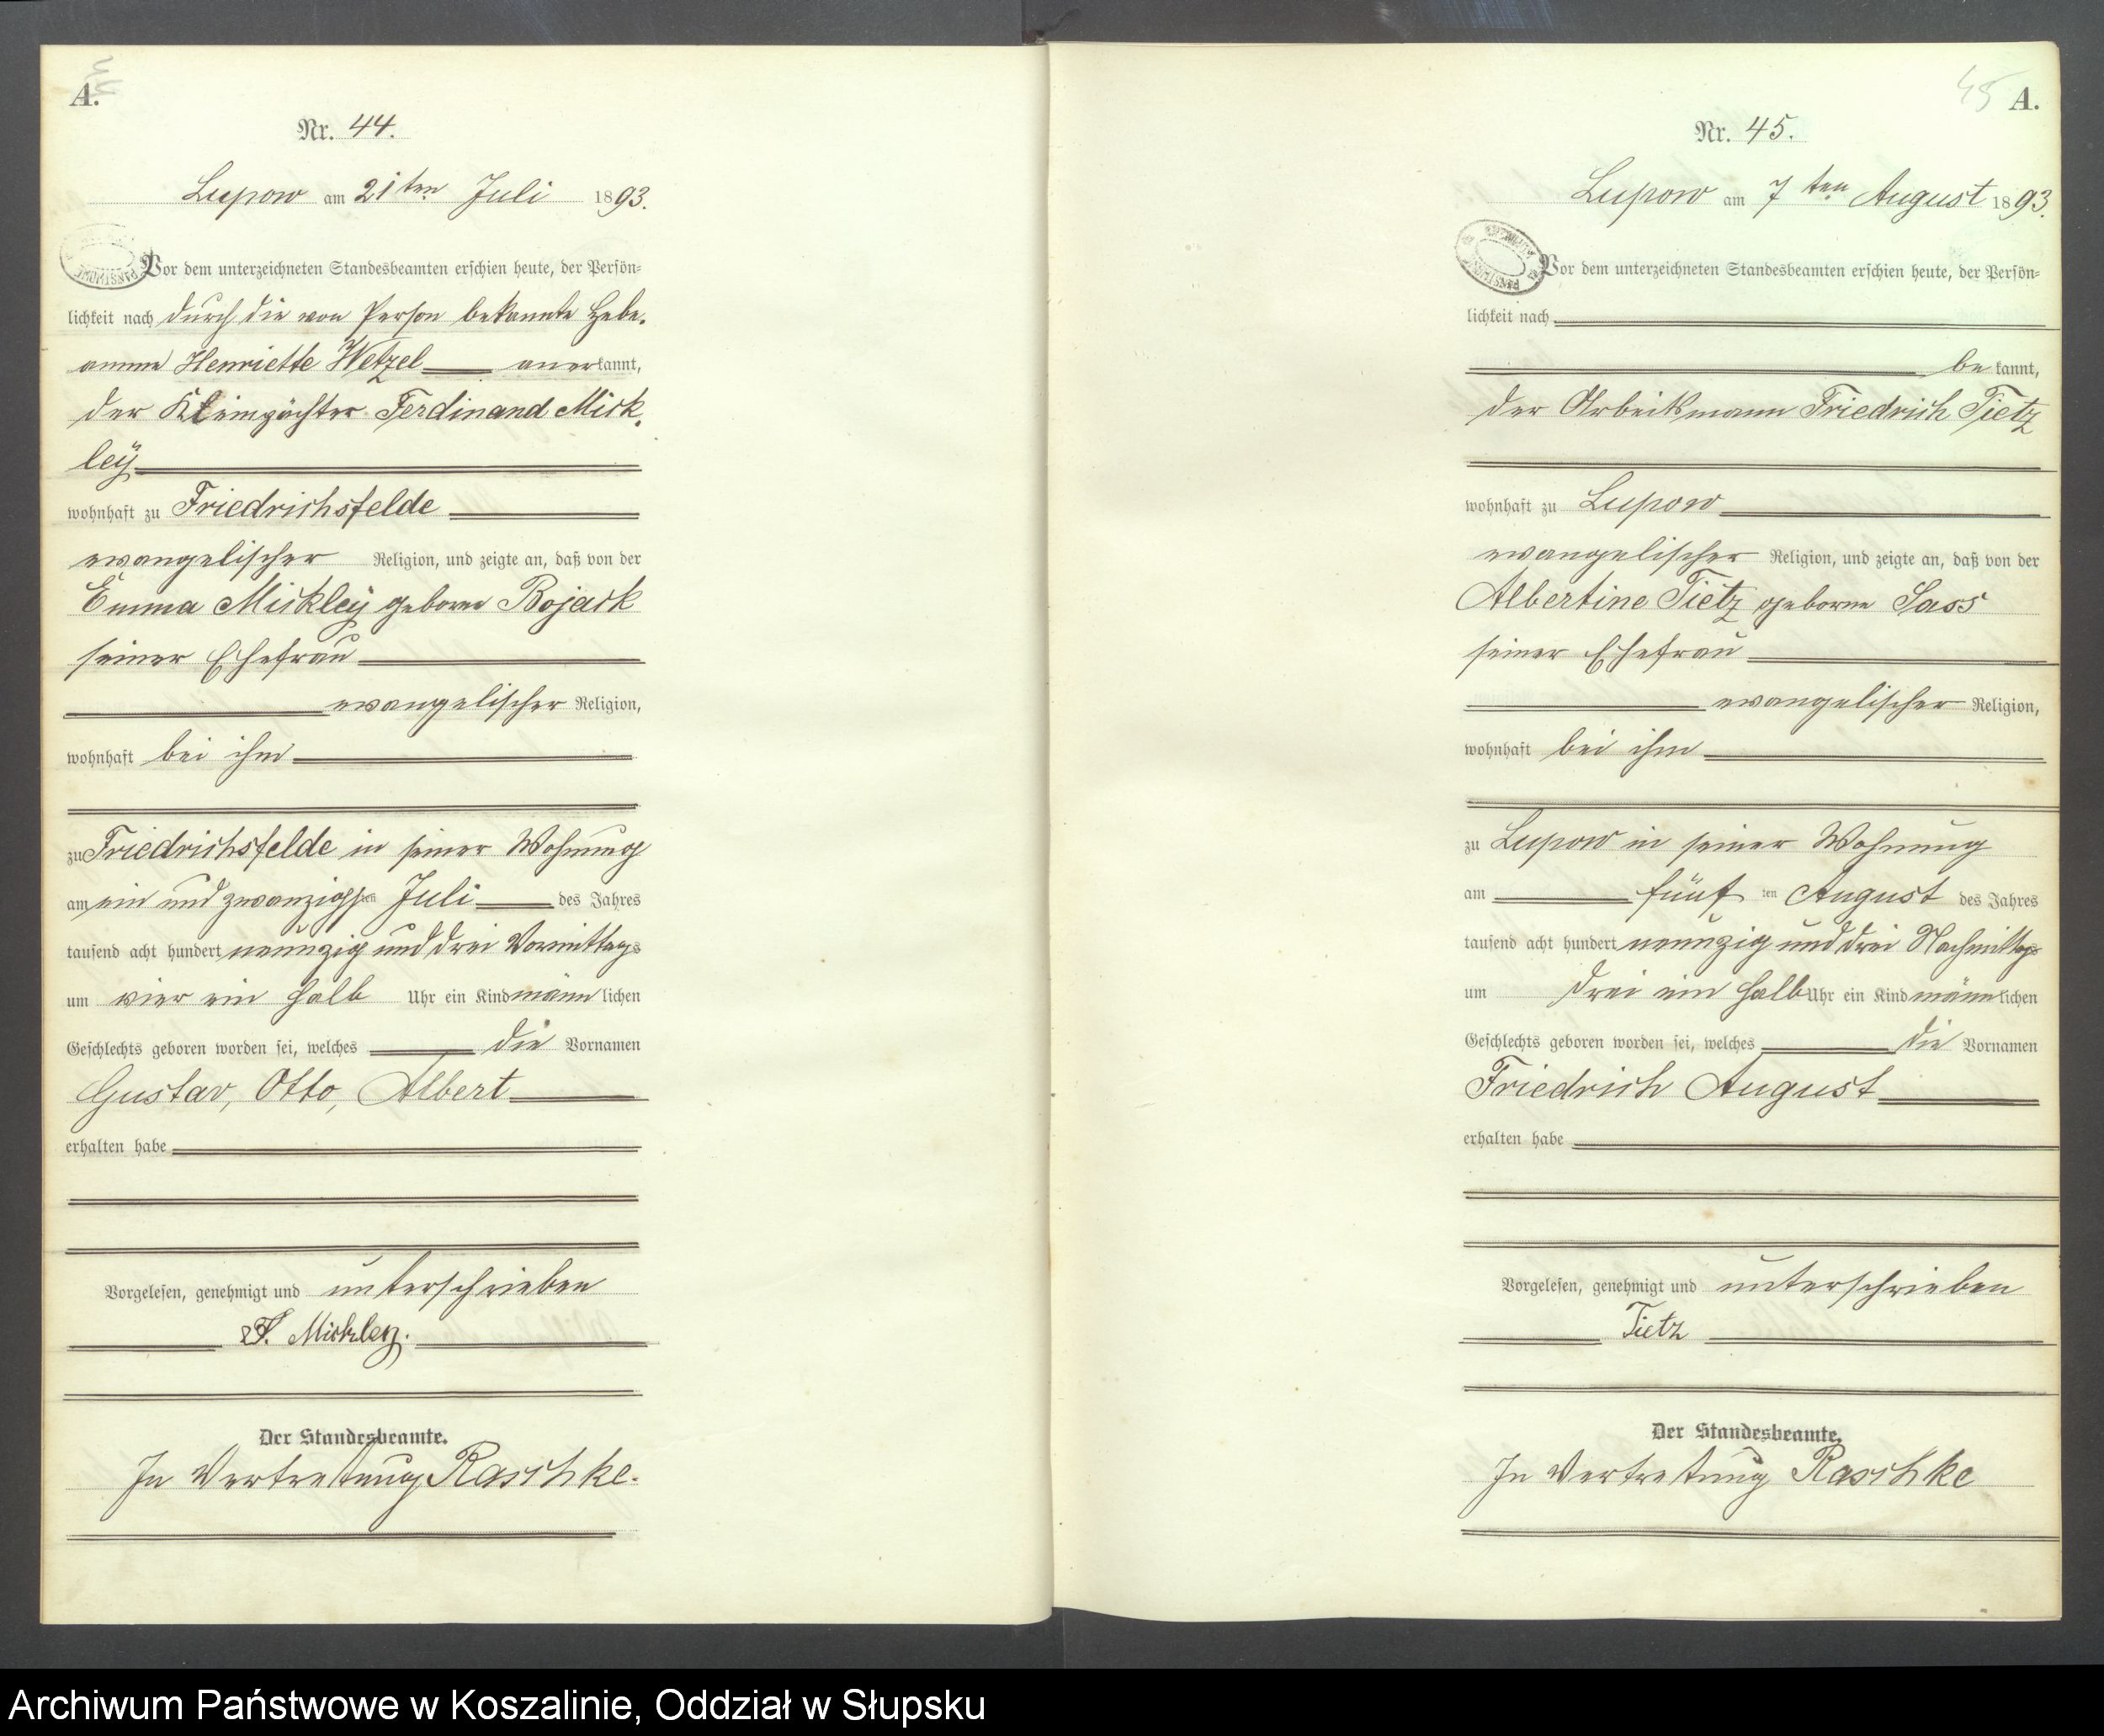 A.
Nr. 44.
Lupow am 21ten Juli 1893.
Vor dem unterzeichneten Standesbeamten erschien heute, der Persön=
lichkeit nach durch die von Person bekannte Hebe-
amme Henriette Wetzel anerkannt,
der Kleinpächter Ferdinand Mick-
ley
wohnhaft zu Friedrichsfelde
evangelischer Religion, und zeigte an, daß von der
Emma Mickley geborne Bojack
seiner Ehefrau
evangelischer Religion,
wohnhaft bei ihm
zu Friedrichsfelde in seiner Wohnung
am ein und zwanzigsten Juli des Jahres
tausend acht hundert neunzig und drei Vormittags
um vier ein halb Uhr ein Kind männlichen
Geschlechts geboren worden sei, welches die Vornamen
Gustav, Otto, Albert
erhalten habe
Vorgelesen, genehmigt und unterschrieben
F. Mickley.
Der Standesbeamte.
In Vertretung Raschke.
45 A.
Nr. 45.
Lupow am 7ten August 1893.
Vor dem unterzeichneten Standesbeamten erschien heute, der Persön=
lichkeit nach
bekannt,
der Arbeitsmann Friedrich Tietz
wohnhaft zu Lupow
evangelischer Religion, und zeigte an, daß von der
Albertine Tietz geborne Sass
seiner Ehefrau
evangelischer Religion,
wohnhaft bei ihm
zu Lupow in seiner Wohnung
am fünften August des Jahres
tausend acht hundert neunzig und drei Nachmittags
um drei ein halb Uhr ein Kind männlichen
Geschlechts geboren worden sei, welches die Vornamen
Friedrich August
erhalten habe
Vorgelesen, genehmigt und unterschrieben
Tietz
Der Standesbeamte.
In Vertretung Raschke
Archiwum Państwowe w Koszalinie, Oddział w Słupsku